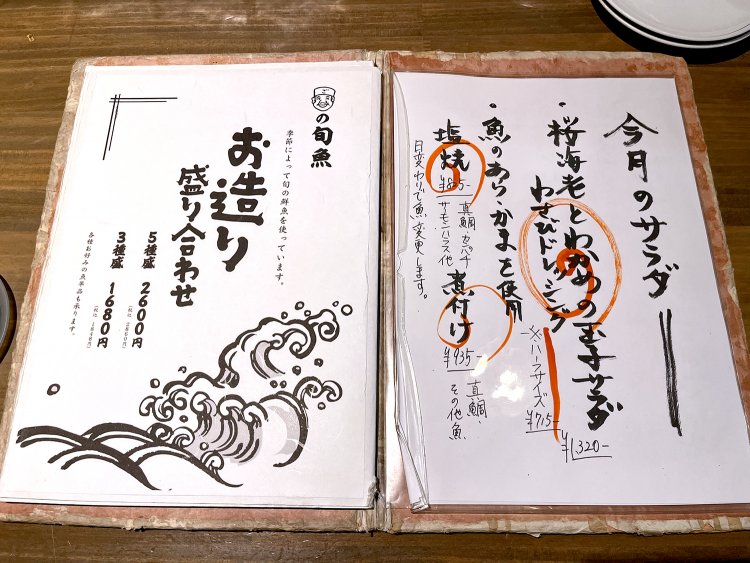 の旬魚
季節によって旬の鮮魚を使っています。
お造り
盛り合わせ
5種盛 2600円
(税込 2860円)
3種盛 1680円
(税込 1848円)
各種お好みの魚単品も承ります。
今月のサラダ
・桜海老とわかめの玉子サラダ
¥1,320-
わさびドレッシング
※ハーフサイズ
¥715-
・魚のあら・かまを使用
塩焼
¥825-
真鯛・カンパチ
サーモンハラス他
煮付け
¥935-
真鯛・
その他魚
日変わりで魚変更します。